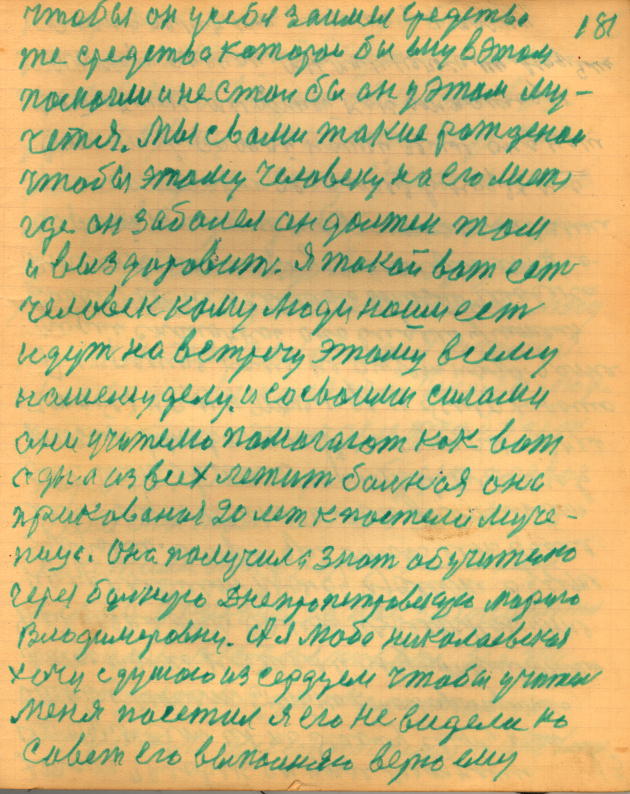 чтобы он у себя заимел средства 181
те средства которои бы ему в этом
помогли и не стои бы он у этом му-
чется. Мы с вами такие рожденои
чтобы этому человеку на его месте
где он заболел он должен там
и выздоровит. Я такой вот ест
человек кому люди наши ест
идут на встречу этому всему
нашему делу. и со своими силами
они учителю помогают как вот
одна из всех лежит болная она
прикованоя 20 лет к постели муче-
ница. Она получила знат об учителю
через болную Днепропетровскую Марию
Владимеровну. А я Люба николаевская
хочу с душою из сердцем чтобы учител
меня посетил я его не видела но
совет его выполняю верю ему